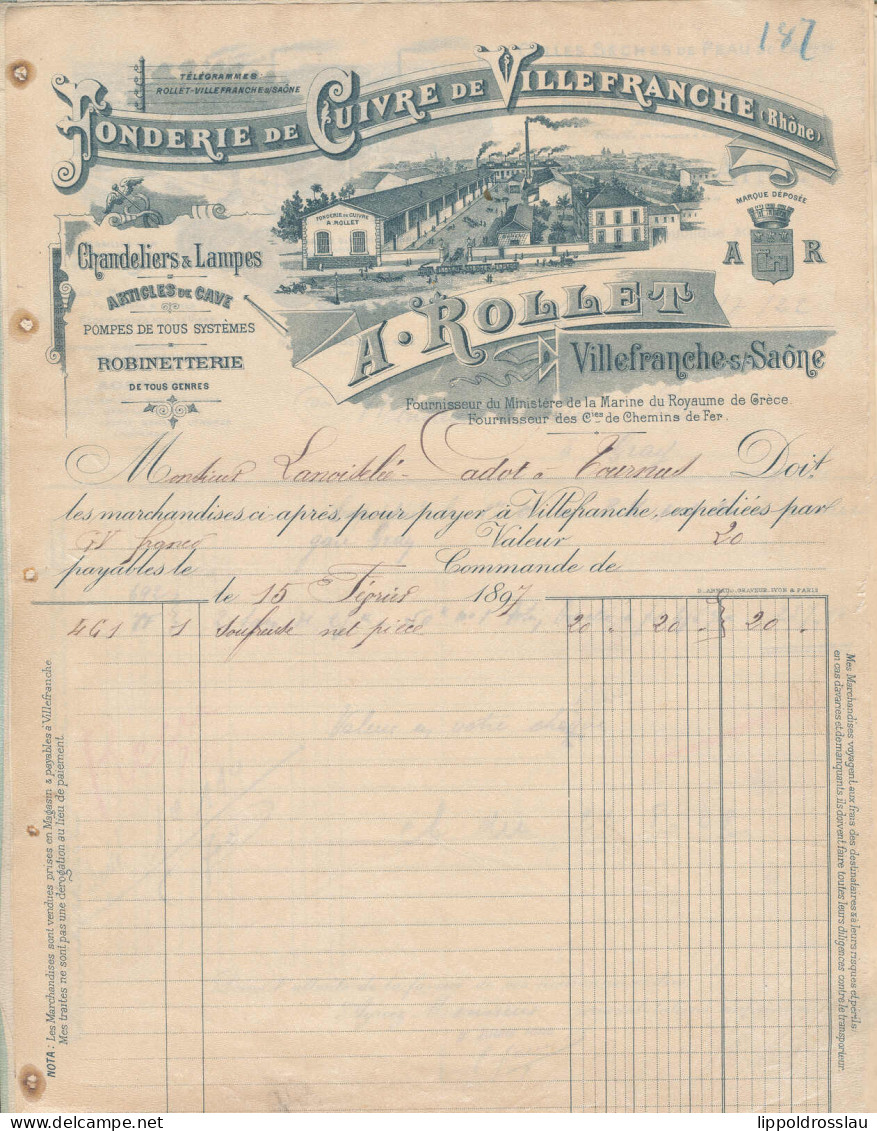 187
TÉLÉGRAMMES
ROLLET-VILLEFRANCHE S/SAÔNE
FONDERIE DE CUIVRE DE VILLEFRANCHE (Rhône)
FONDERIE DE CUIVRE
A. ROLLET
MARQUE DÉPOSÉE
A R
Chandeliers & Lampes
ARTICLES DE CAVE
POMPES DE TOUS SYSTÈMES
ROBINETTERIE
DE TOUS GENRES
A. ROLLET
Villefranche-s/-Saône
Fournisseur du Ministère de la Marine du Royaume de Grèce.
Fournisseur des Cies de Chemins de Fer.
Monsieur Lanoiselié-Cadot à Tournus Doit
les marchandises ci-après, pour payer à Villefranche, expédiées par
GV franco gare Valeur 20
payables le Commande de
le 15 Février 1897
461 1 Soufreuse net pièce 20 20 20
NOTA: Les Marchandises sont vendues prises en Magasin & payables à Villefranche
Mes traites ne sont pas une dérogation au lieu de paiement.
Mes Marchandises voyagent aux frais des destinataires & à leurs risques et périls;
en cas d'avaries et de manquants ils doivent faire toutes leurs diligences contre le transporteur.
lippoldrosslau